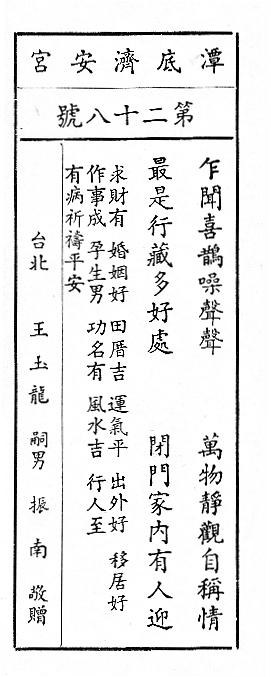 潭底濟安宮
第二十八號
乍聞喜鵲噪聲聲　萬物靜觀自稱情
最是行藏多好處　閉門家內有人迎
求財有　婚姻好　田厝吉　運氣平　出外好　移居好
作事成　孕生男　功名有　風水吉　行人至
有病祈禱平安
台北　王玉龍　嗣男　振南　敬贈